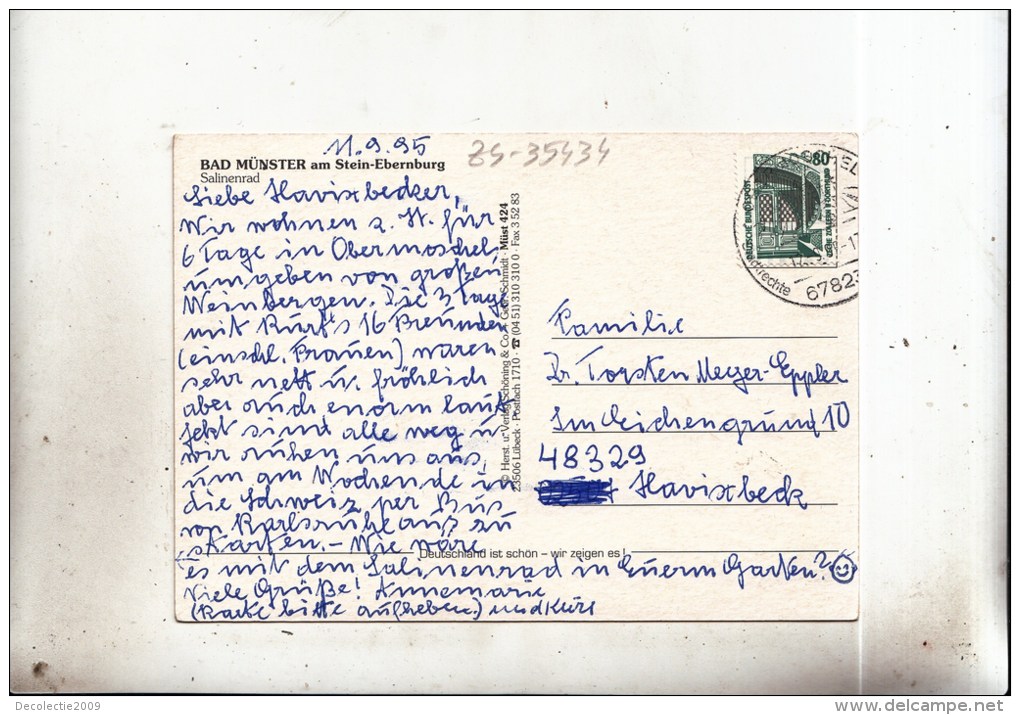 11.9.95
ZS-35434
BAD MÜNSTER am Stein-Ebernburg
Salinenrad
Liebe Havixbecker,
Wir wohnen z. Zt. für
6 Tage in Obermoschel
umgeben von großen
Weinbergen. Die 3 Tage
mit Kurt's 16 Freunden
(einschl. Frauen) waren
sehr nett u. fröhlich
aber auch enorm laut
Jetzt sind alle weg u
wir ruhen uns aus,
um am Wochende in
die Schweiz per Bus
von Karlsruhe aus zu
starten. - Wie wäre
es mit dem Salinenrad in Euerm Garten?
Viele Grüße! Annemarie
(Karte bitte aufheben) und Kurt
Herst. u. Verlag Schöning & Co. + Gebr. Schmidt · Müst 424
23506 Lübeck · Postfach 1710 · ☎ (04 51) 310 310 0 · Fax 3 52 83
Deutschland ist schön – wir zeigen es!
80
DEUTSCHE BUNDESPOST
67823
Familie
Dr. Torsten Meyer-Eppler
Im Eichengrund 10
48329
Havixbeck
Decolectie2009
www.delcampe.net